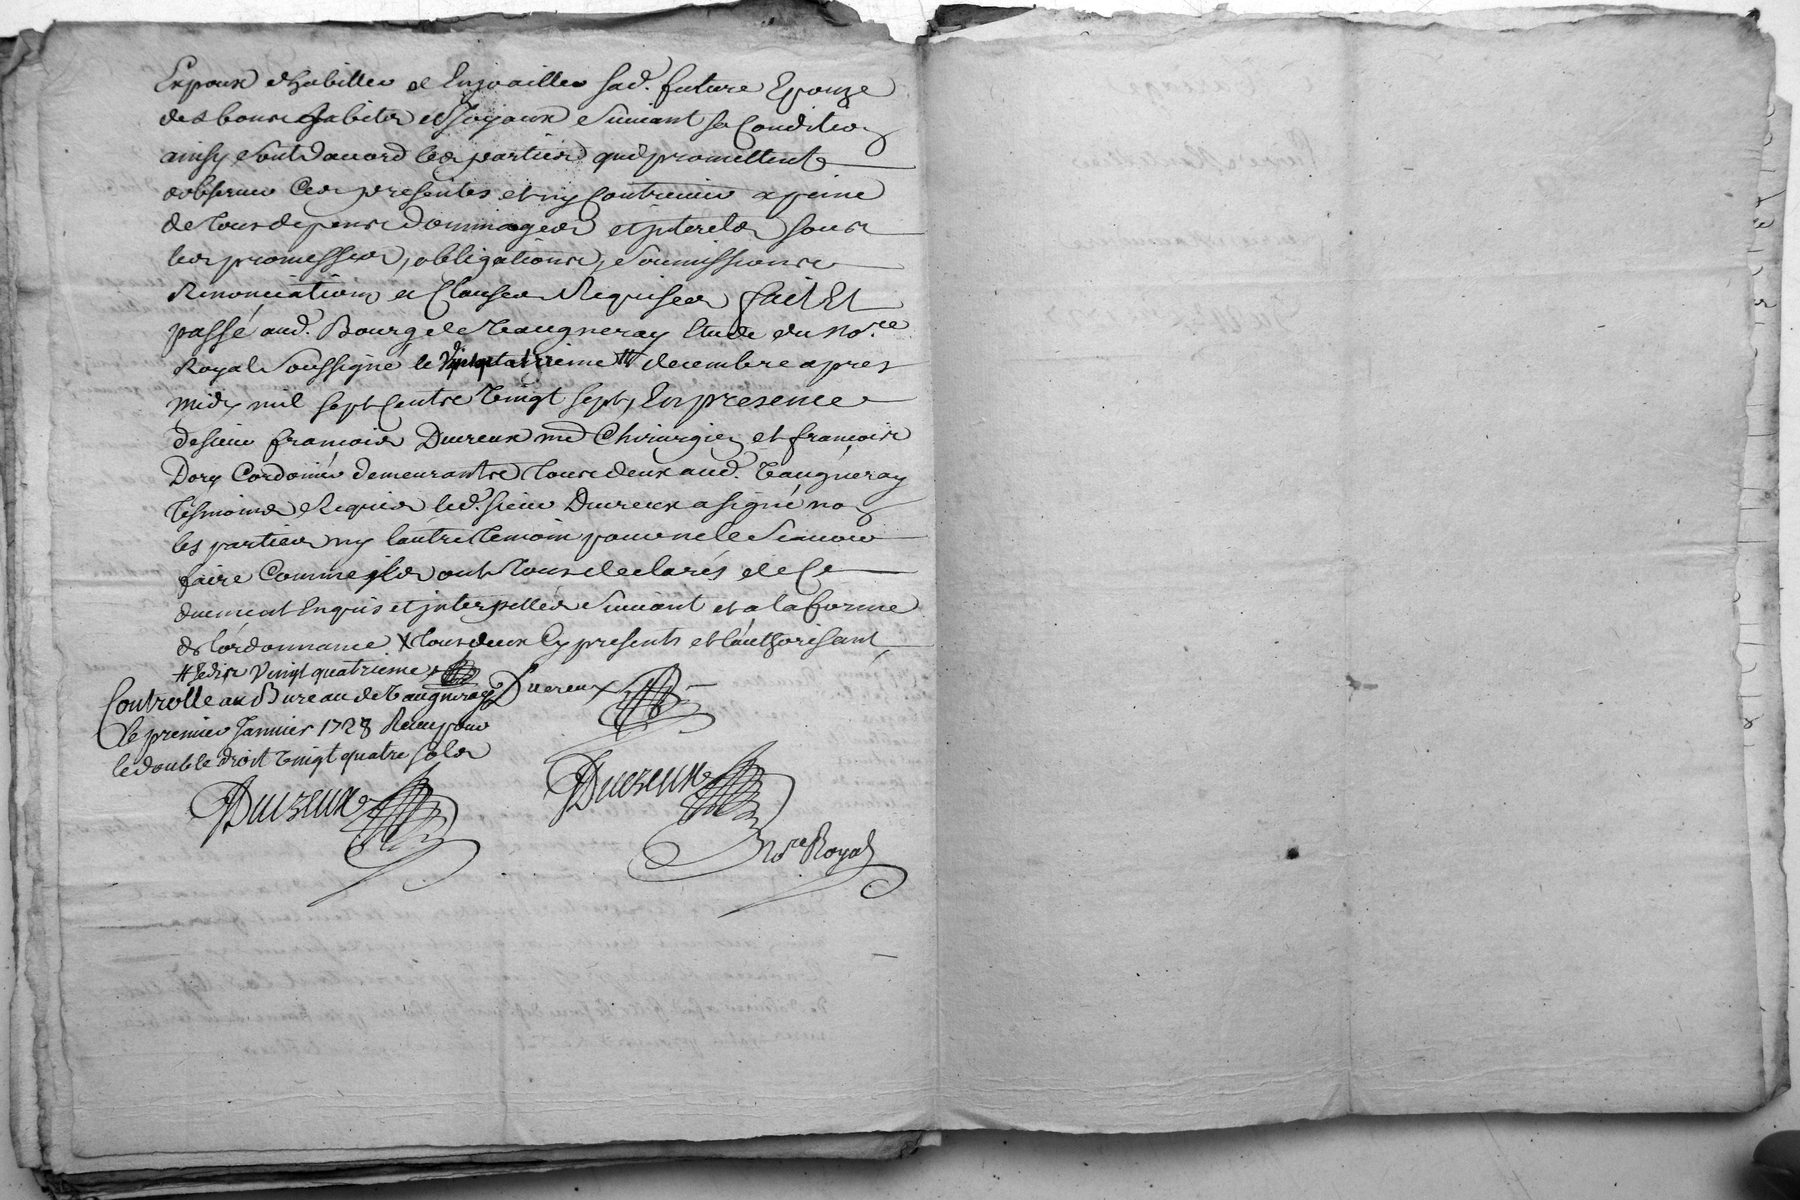 Expoux dhabiller et Enjoailler sad. future Epouze
des bons habits et Joyaux Suivant sa Condition
ainsy sont daccord les parties qui promettent
dobserver Ces presentes et ny Contrevenir a peine
de tous depens Dommages et jnterets sous
les promesses, obligations, Soumissions
Renonciations et Clauses Requises fait Et
passé aud. Bourg de Vaugneray Etude du no.re
Royal Soussigné le decembre apres
midy mil sept Cents Vingt sept, En presence
de sieur françois Duvreux md Chirurgien et françois
Dory Cordonier demeurants tous deux aud. Vaugneray
tesmoins Requis led. sieur Duvreux a signé non
les parties ny lautre temoin pour ne le Scavoir
faire Comme jls ont tous declarés de Ce
duement Enquis et jnterpellés Suivant et a la forme
de lordonnance X tous deux Cy presents et lauthorisant
# Vingt quatrieme
Controllé au Bureau de Vaugneray
le premier Janvier 1728 Receu pour
le double droit Vingt quatre sols
Duvreux
Duvreux
Duvreux
no.re Royal